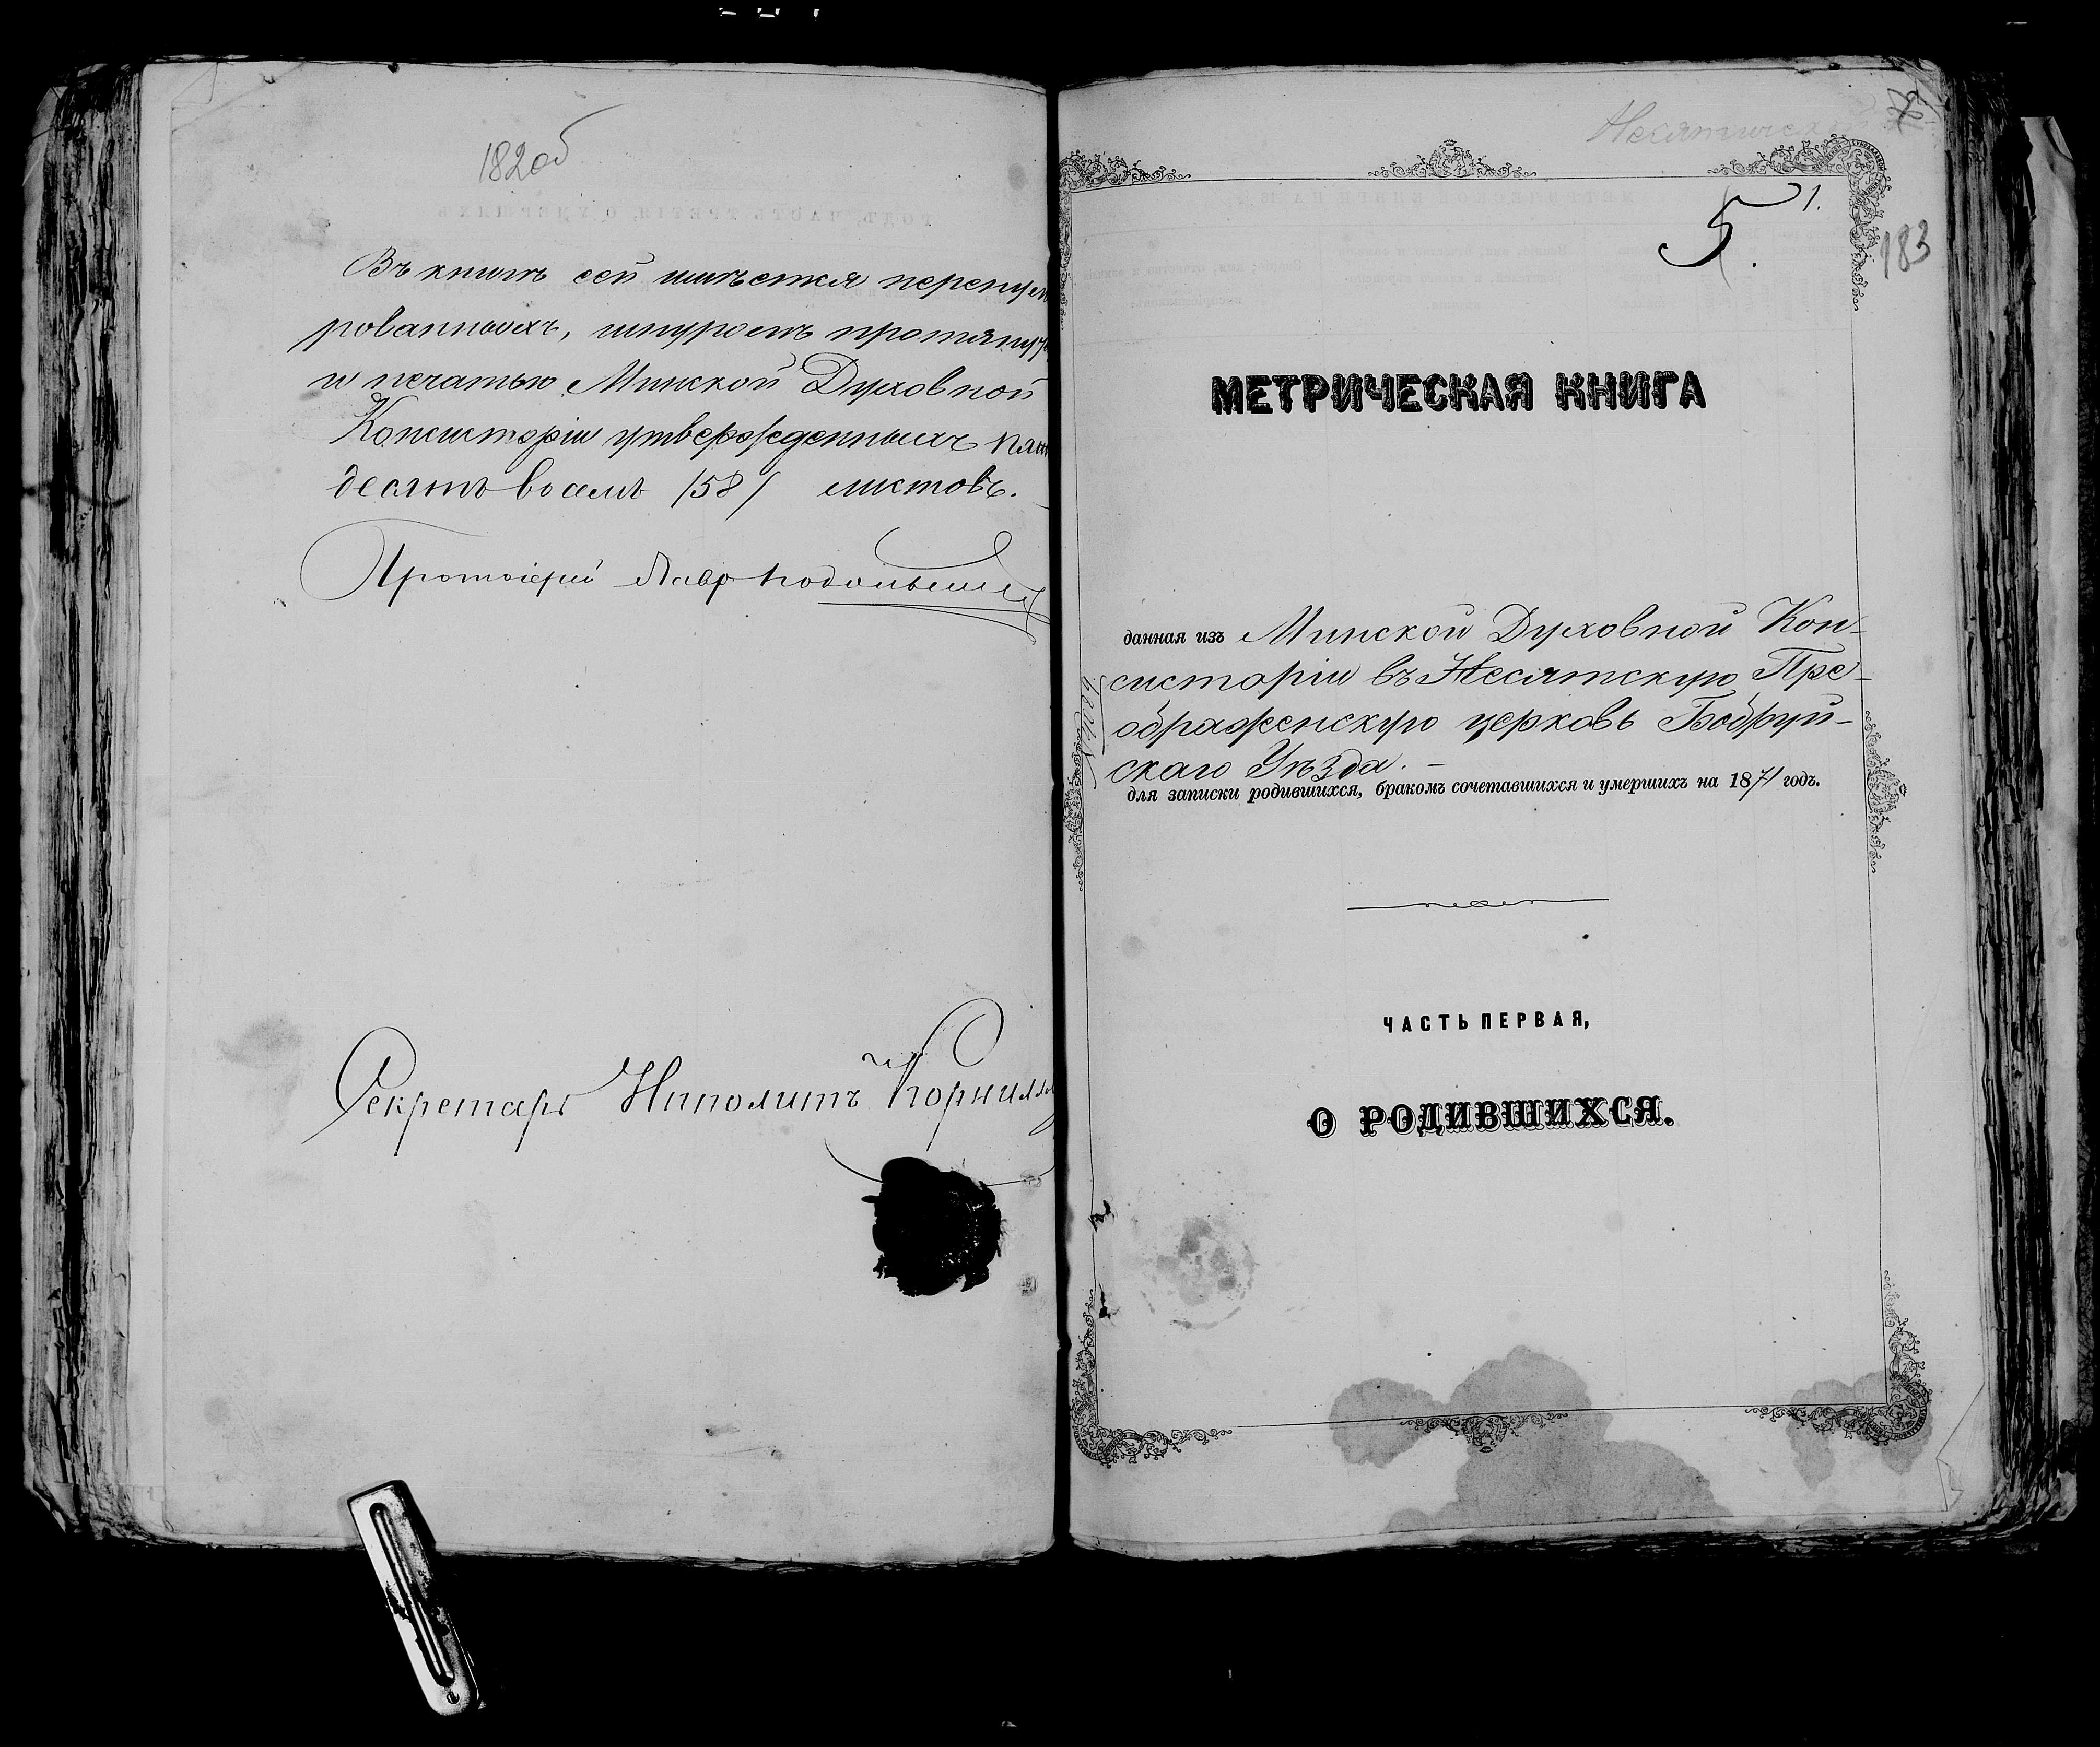 182 об
Въ книгѣ сей имѣется перенуме
рованныхъ, шнуромъ протянут
и печатью Минской Духовной
Консисторіи утвержденныхъ пять
десятъ восемь /58/ листовъ.
Протоіерей Лавръ
Секретарь Иполитъ Корнил
5
1.
183
МЕТРИЧЕСКАЯ КНИГА
данная изъ Минской Духовной Кон-
систоріи въ Несятскую Пре-
ображенскую церковь Бобруй-
скаго Уѣзда. –
для записки родившихся, бракомъ сочетавшихся и умершихъ на 1871 годъ.
ЧАСТЬ ПЕРВАЯ,
О РОДИВШИХСЯ.